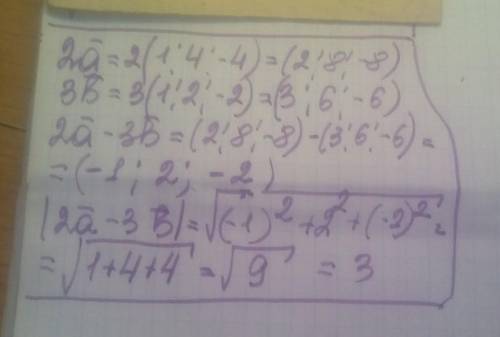 2a̅ = 2(1; 4; -4) = (2; 8; -8)
3b̅ = 3(1; 2; -2) = (3; 6; -6)
2a̅ - 3b̅ = (2; 8; -8) - (3; 6; -6) =
= (-1; 2; -2)
|2a̅ - 3b̅| = √((-1)² + 2² + (-2)²) =
= √(1+4+4) = √9 = 3